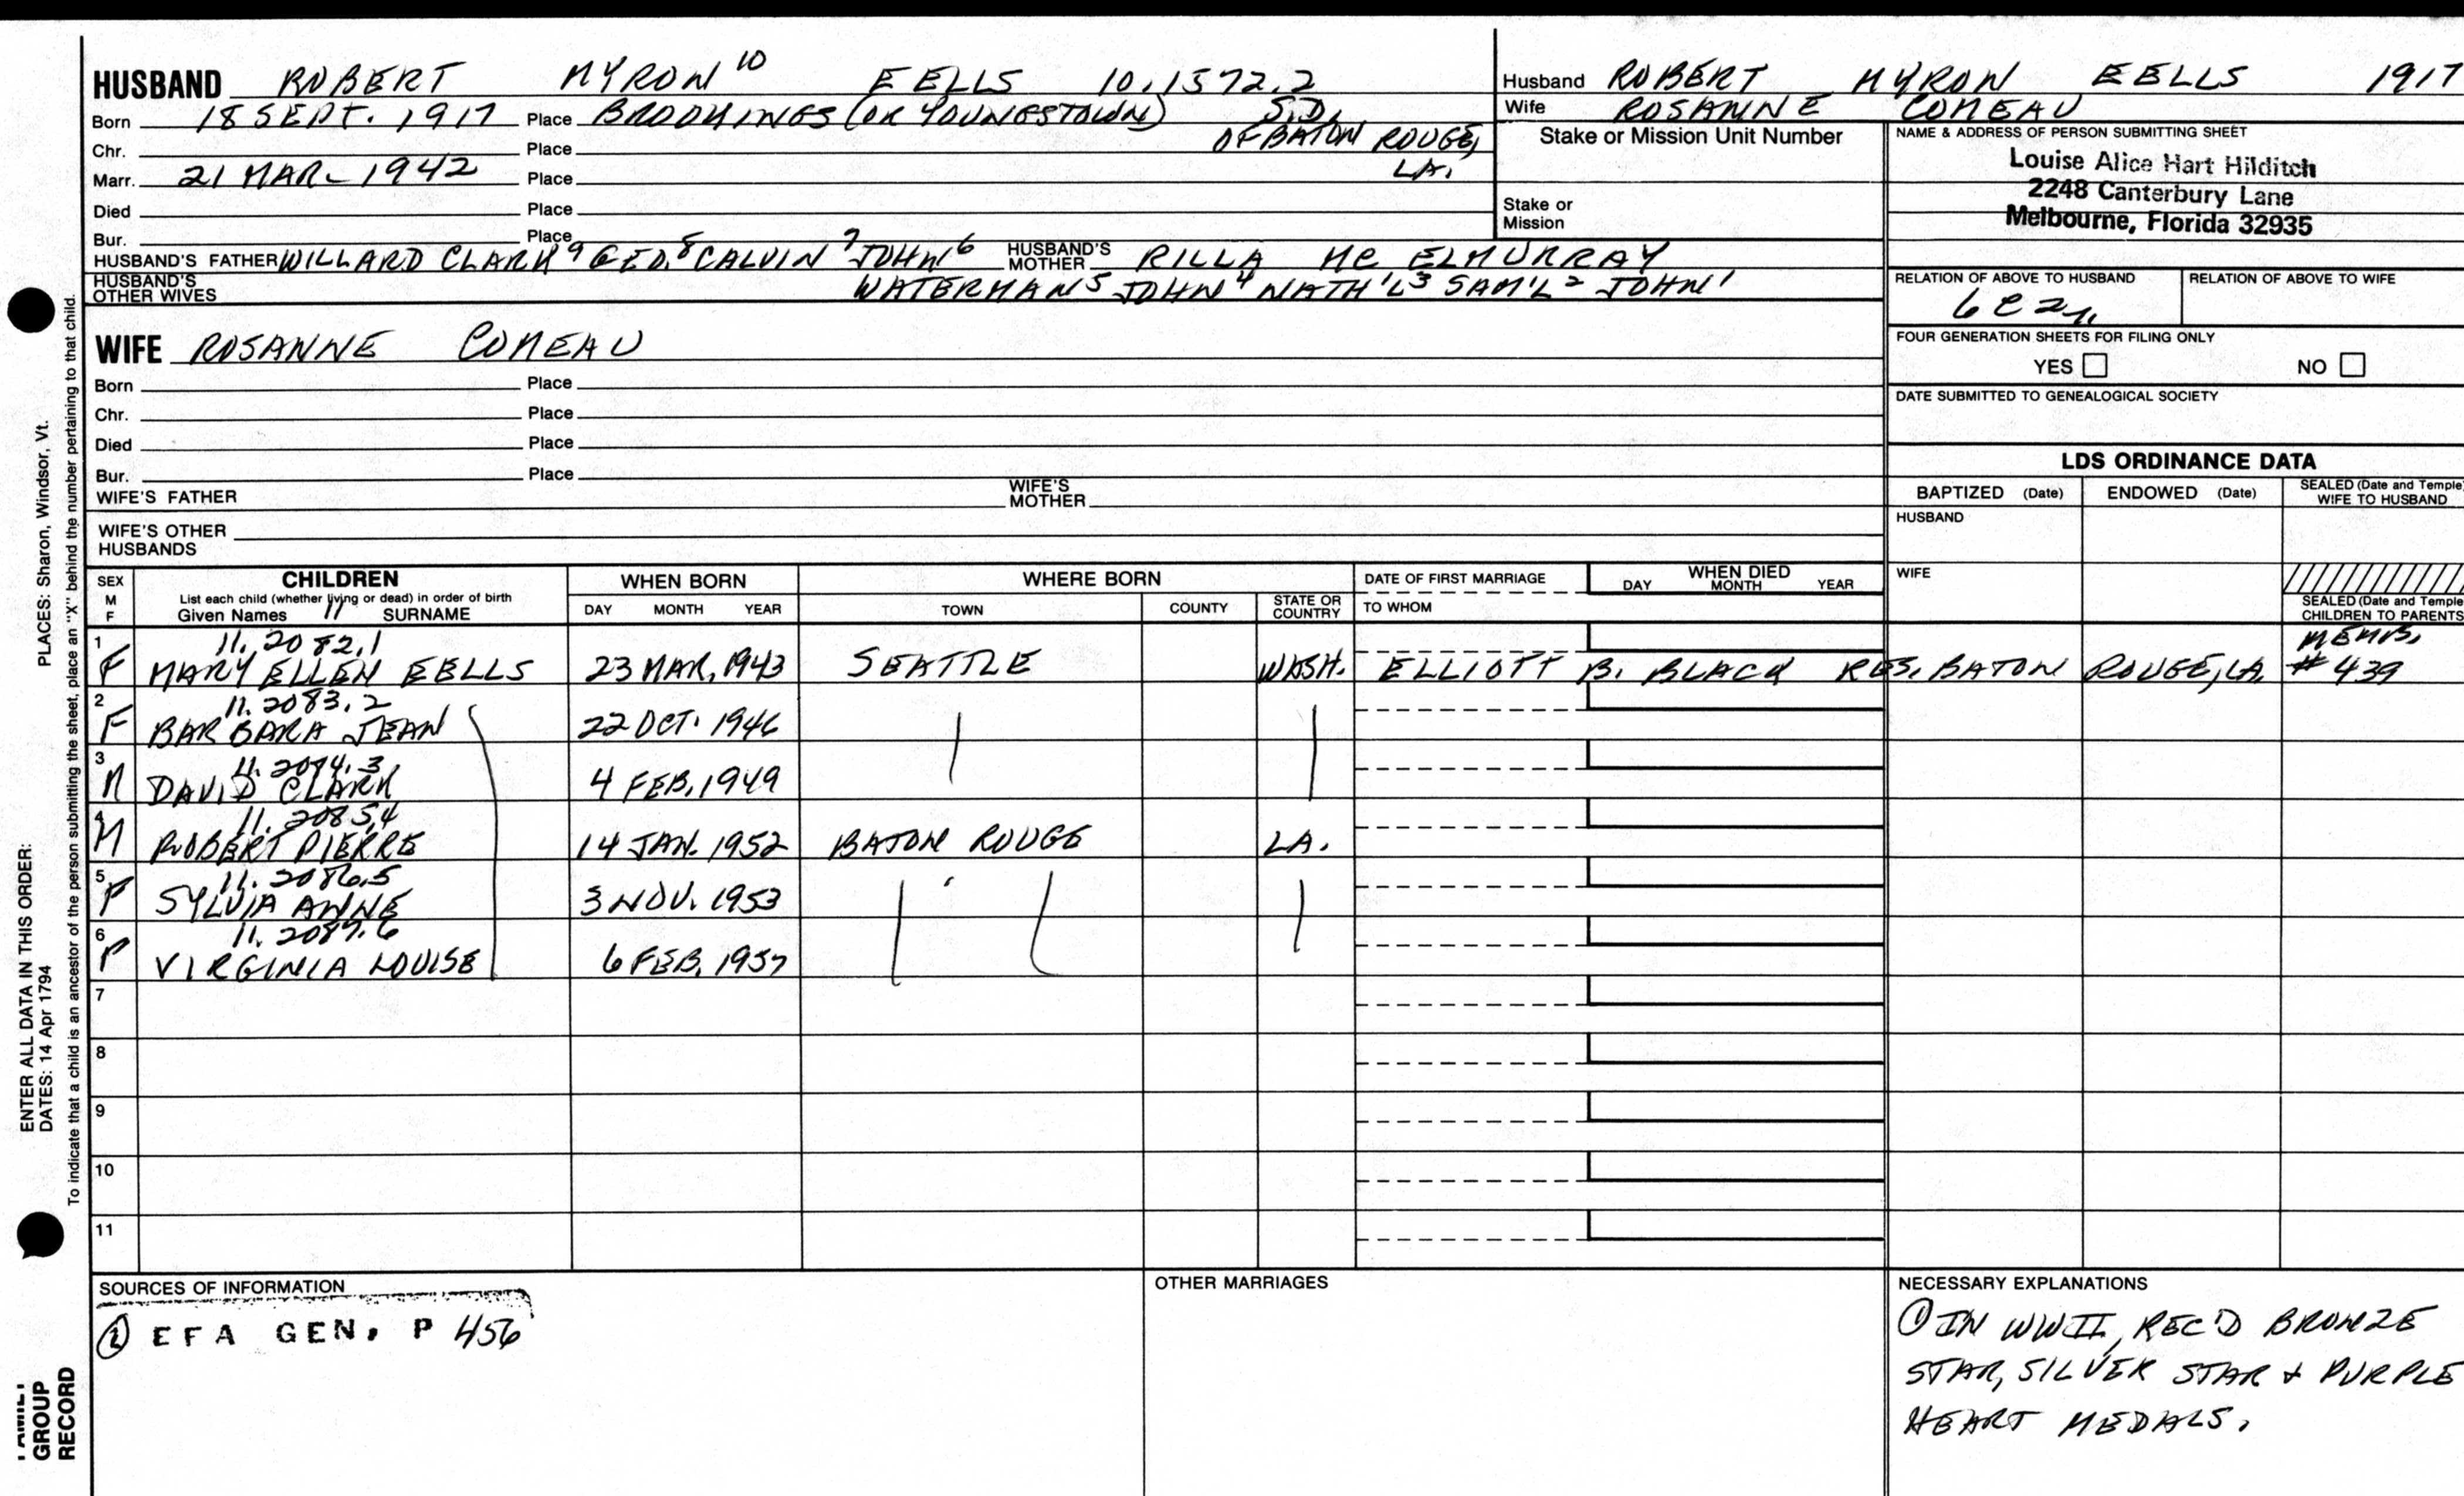 HUSBAND ROBERT MYRON 10 EELLS 10.1572.2
Born 18 SEPT. 1917 Place BROOKINGS (OR YOUNGSTOWN) S.D.
Chr. Place OF BATON ROUGE,
Marr. 21 MAR. 1942 Place LA.
Died Place
Bur. Place
HUSBAND'S FATHER WILLARD CLARK 9 GEO. 8 CALVIN 7 JOHN 6 HUSBAND'S MOTHER RILLA MC ELMURRAY
HUSBAND'S OTHER WIVES WATERMAN 5 JOHN 4 NATH'L 3 SAM'L 2 JOHN 1
WIFE ROSANNE COMEAU
Born Place
Chr. Place
Died Place
Bur. Place
WIFE'S FATHER WIFE'S MOTHER
WIFE'S OTHER HUSBANDS
Husband ROBERT MYRON EELLS 1917
Wife ROSANNE COMEAU
Stake or Mission Unit Number
Stake or Mission
NAME & ADDRESS OF PERSON SUBMITTING SHEET
Louise Alice Hart Hilditch
2248 Canterbury Lane
Melbourne, Florida 32935
RELATION OF ABOVE TO HUSBAND RELATION OF ABOVE TO WIFE
6C2r.
FOUR GENERATION SHEETS FOR FILING ONLY
YES NO
DATE SUBMITTED TO GENEALOGICAL SOCIETY
LDS ORDINANCE DATA
BAPTIZED (Date) ENDOWED (Date) SEALED (Date and Temple) WIFE TO HUSBAND
HUSBAND
WIFE
SEALED (Date and Temple
CHILDREN TO PARENTS
SEX M F CHILDREN WHEN BORN WHERE BORN DATE OF FIRST MARRIAGE WHEN DIED
List each child (whether living or dead) in order of birth
Given Names 11 SURNAME DAY MONTH YEAR TOWN COUNTY STATE OR COUNTRY TO WHOM DAY MONTH YEAR
1 11.2082.1 MEMB.
F MARY ELLEN EELLS 23 MAR. 1943 SEATTLE WASH. ELLIOTT B. BLACK RES. BATON ROUGE, LA. #439
2 11.2083.2
F BARBARA JEAN 22 OCT. 1946
3
M DAVID CLARK 4 FEB. 1949
4 11.2085.4
M ROBERT PIERRE 14 JAN. 1952 BATON ROUGE LA.
5 11.2086.5
F SYLVIA ANNE 3 NOV. 1953
6 11.2087.6
F VIRGINIA LOUISE 6 FEB. 1957
7
8
9
10
11
SOURCES OF INFORMATION
① EFA GEN. P 456
OTHER MARRIAGES
NECESSARY EXPLANATIONS
① IN WWII, REC'D BRONZE
STAR, SILVER STAR & PURPLE
HEART MEDALS.
ENTER ALL DATA IN THIS ORDER:
DATES: 14 Apr 1794 PLACES: Sharon, Windsor, Vt.
To indicate that a child is an ancestor of the person submitting the sheet, place an "X" behind the number pertaining to that child.
GROUP
RECORD